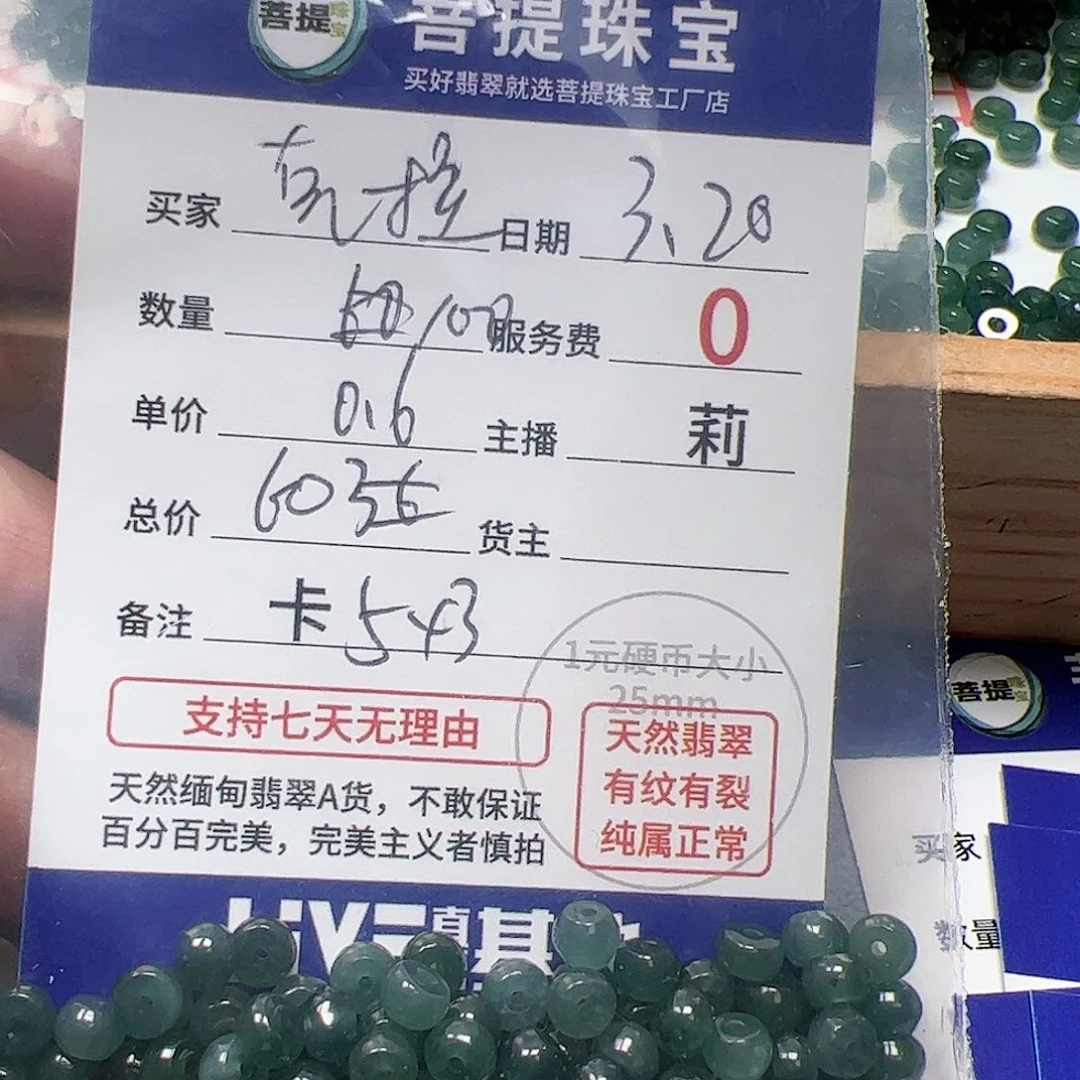 菩提珠宝
菩提珠宝
买好翡翠就选菩提珠宝工厂店
买家 日期 3.20
数量 100 服务费 0
单价 0.6 主播 莉
总价 60 货主
备注 卡543
1元硬币大小
25mm
支持七天无理由
天然翡翠
有纹有裂
纯属正常
天然缅甸翡翠A货，不敢保证
百分百完美，完美主义者慎拍
菩提珠宝
买家
数量